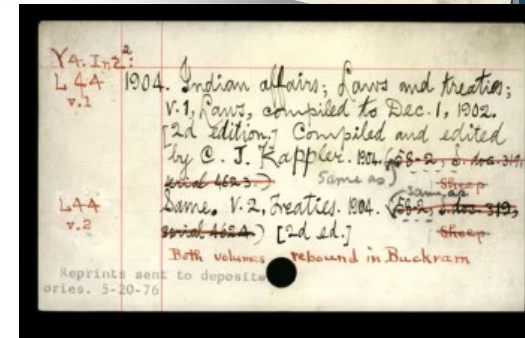 Y4. In2²:
L44 1904. Indian affairs; Laws and treaties;
v.1 v.1, Laws, compiled to Dec. 1, 1902.
[2d edition.] Compiled and edited
by C. J. Kappler. 1904. (58-2, S. doc. 319,
serial 4623.) Same as) Sheep
same as
L44 Same. V. 2, Treaties. 1904. (58-2, s. doc. 319,
v.2 serial 4624.) [2d ed.] Sheep
Both volumes rebound in Buckram
Reprints sent to deposit
ories. 5-20-76